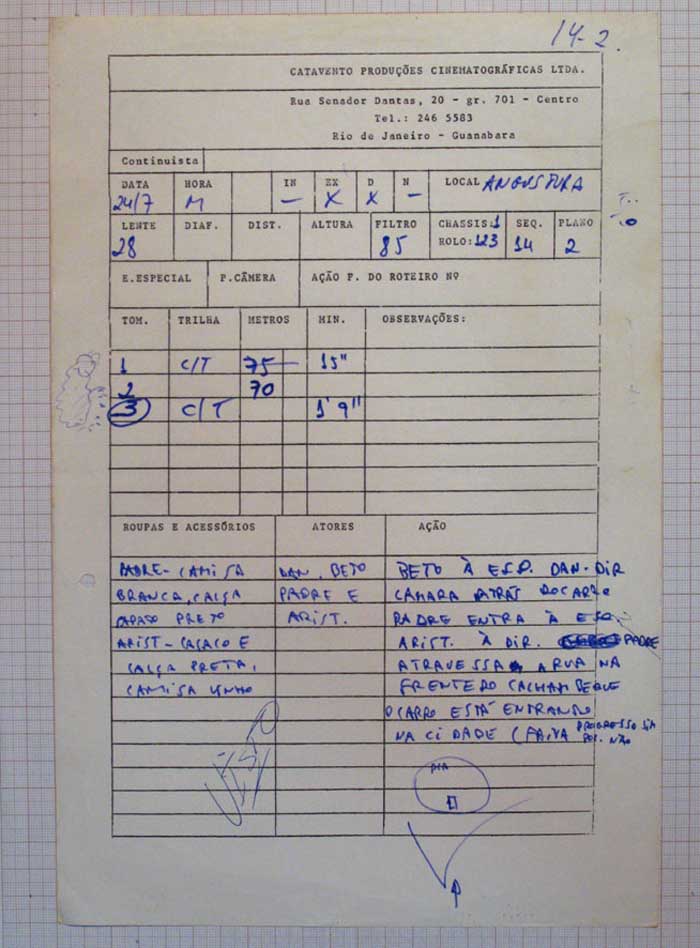 14-2.
CATAVENTO PRODUÇÕES CINEMATOGRÁFICAS LTDA.
Rua Senador Dantas, 20 - gr. 701 - Centro
Tel.: 246 5583
Rio de Janeiro - Guanabara
Continuista
DATA HORA IN EX D N LOCAL ANGUSTURA
24/7 M — X X —
LENTE DIAF. DIST. ALTURA FILTRO CHASSIS: 1 SEQ. PLANO
28 85 ROLO: 123 14 2
E.ESPECIAL P.CÂMERA AÇÃO P. DO ROTEIRO Nº
TOM. TRILHA METROS MIN. OBSERVAÇÕES:
1 C/T 75 15"
2 70
3 C/T 1' 9"
ROUPAS E ACESSÓRIOS ATORES AÇÃO
PADRE - CAMISA DAN, BETO BETO À ESQ. DAN - DIR
BRANCA, CALÇA PADRE E CÂMARA ATRÁS DO CARRO
PRETO ARIST. PADRE ENTRA À ESQ.
ARIST - CASACO E ARIST. À DIR. PADRE
CALÇA PRETA, ATRAVESSA A RUA NA
CAMISA VINHO FRENTE DO QUE
O CARRO ESTÁ ENTRANDO
NA CIDADE ( FAIXA PROGRESSO SIM
POS. NÃO
VISTO
DIA